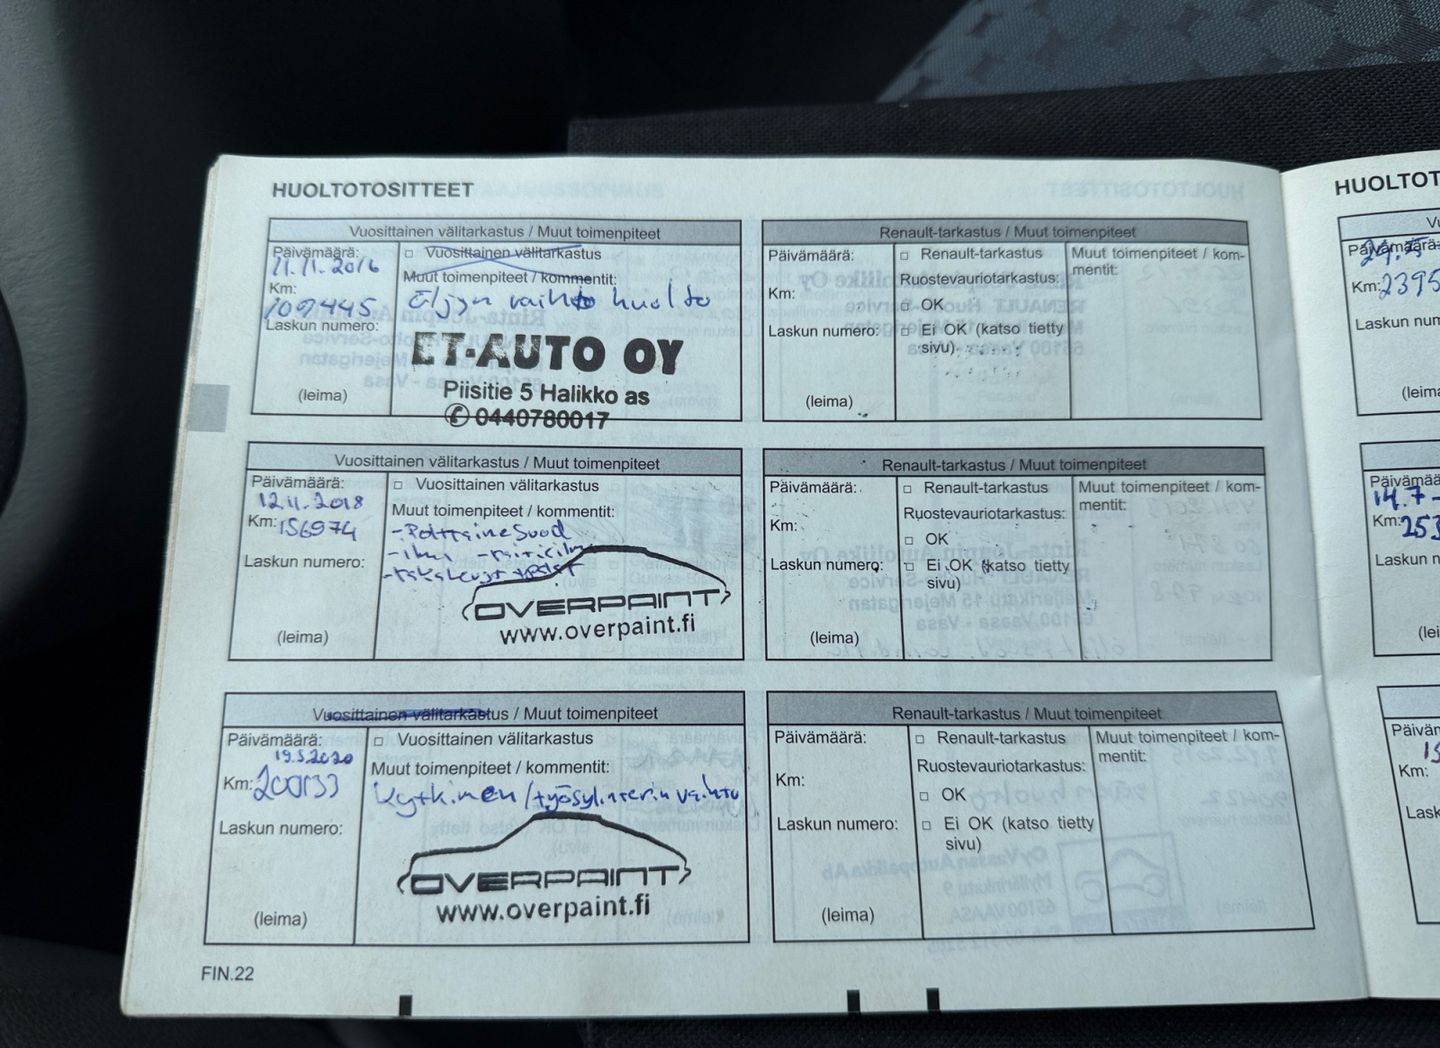 HUOLTOTOSITTEET
Vuosittainen välitarkastus / Muut toimenpiteet
Päivämäärä:
21.11.2016
Km:
109445
Laskun numero:
(leima)
□ Vuosittainen välitarkastus
Muut toimenpiteet / kommentit:
Öljyn vaihto huolto
ET-AUTO OY
Piisitie 5 Halikko as
✆ 0440780017
Renault-tarkastus / Muut toimenpiteet
Päivämäärä:
Km:
Laskun numero:
(leima)
□ Renault-tarkastus
Ruostevauriotarkastus:
□ OK
□ Ei OK (katso tietty
sivu)
Muut toimenpiteet / kom-
mentit:
Vuosittainen välitarkastus / Muut toimenpiteet
Päivämäärä:
12.11.2018
Km: 156974
Laskun numero:
(leima)
□ Vuosittainen välitarkastus
Muut toimenpiteet / kommentit:
- Polttainesuod
- ilma - raitisilma
OVERPAINT
www.overpaint.fi
Renault-tarkastus / Muut toimenpiteet
Päivämäärä:
Km:
Laskun numero:
(leima)
□ Renault-tarkastus
Ruostevauriotarkastus:
□ OK
□ Ei OK (katso tietty
sivu)
Muut toimenpiteet / kom-
mentit:
Vuosittainen välitarkastus / Muut toimenpiteet
Päivämäärä:
19.5.2020
Km: 200133
Laskun numero:
(leima)
□ Vuosittainen välitarkastus
Muut toimenpiteet / kommentit:
Kytkimen / työsylinterin vaihto
OVERPAINT
www.overpaint.fi
Renault-tarkastus / Muut toimenpiteet
Päivämäärä:
Km:
Laskun numero:
(leima)
□ Renault-tarkastus
Ruostevauriotarkastus:
□ OK
□ Ei OK (katso tietty
sivu)
Muut toimenpiteet / kom-
mentit:
FIN.22
HUOLTOT
Päivämäärä:
Km: 2395
Laskun n
(leima
Päivämäärä
14.7-
Km: 253
Laskun n
(lei
Päiväm
Km:
Lask